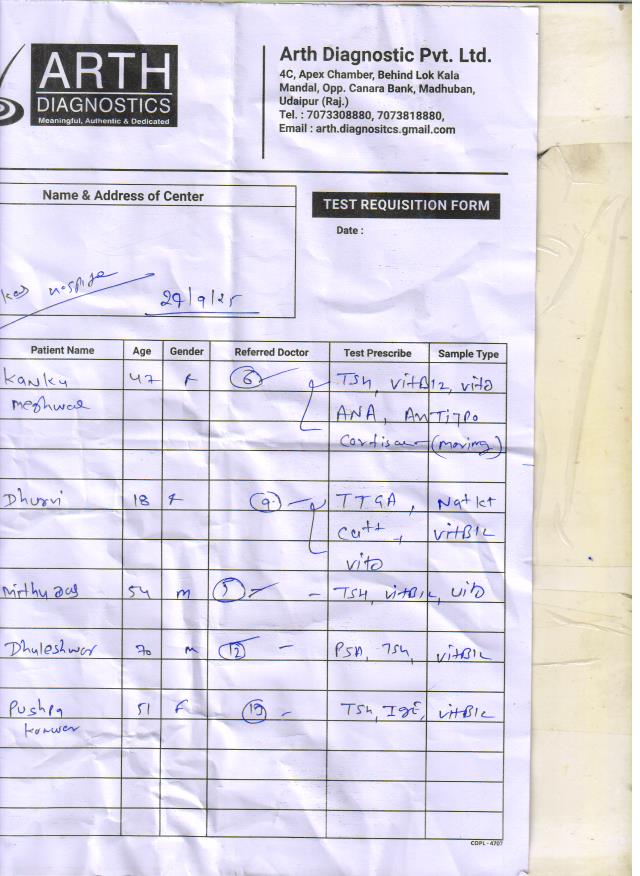 ARTH
DIAGNOSTICS
Meaningful, Authentic & Dedicated
Arth Diagnostic Pvt. Ltd.
4C, Apex Chamber, Behind Lok Kala
Mandal, Opp. Canara Bank, Madhuban,
Udaipur (Raj.)
Tel. : 7073308880, 7073818880,
Email : arth.diagnositcs.gmail.com
Name & Address of Center
TEST REQUISITION FORM
Date :
27/9/25
Patient Name Age Gender Referred Doctor Test Prescribe Sample Type
Kanku 47 F 6 TSH, vitB12, vitD
meghwal ANA, AntiTPO
(morning)
Dhurvi 18 F 9 TTGA, Na+k+
Ca++, vitB12
vitD
54 m 5 TSH, vitB12, vitD
Dhuleshwar 70 m 12 PSA, TSH, vitB12
Pushpa 51 F 19 TSH, IgE, vitB12
kanwar
CDPL - 4707